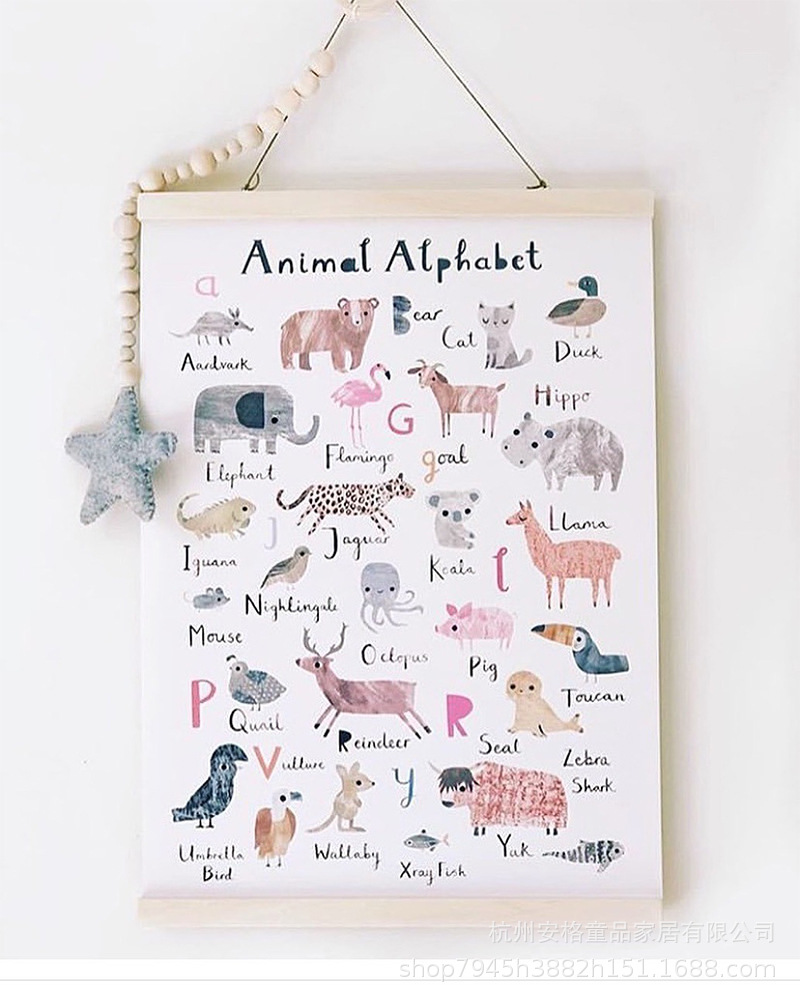 Animal Alphabet
a
Aardvark
Bear
Cat
Duck
Elephant
Flamingo
G
goat
Hippo
Iguana
J
Jaguar
Koala
l
Llama
Mouse
Nightingale
Octopus
Pig
Toucan
P
Quail
Reindeer
R
Seal
Zebra
Shark
Vulture
y
Umbrella
Bird
Wallaby
Xray Fish
Yak
杭州安格童品家居有限公司
shop7945h3882h151.1688.com